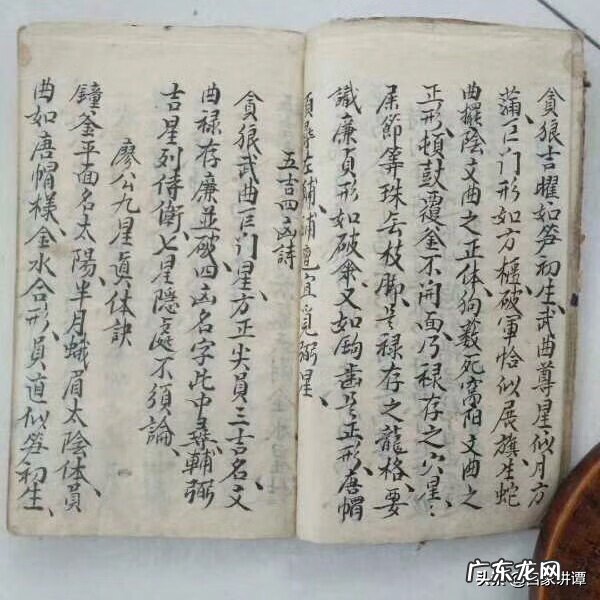 貪狼吉曜如笋初生、武曲尊星似月方
蒲、巨门形如方櫃、破軍恰似展旗、生蛇
曲擺陰文曲之正体、狗薮死窩阳文曲之
正形、頓鼓覆釜不開面乃禄存之穴星、
屈節等珠去枝脚是禄存之龍格、要
識廉貞形如破傘、又如鈎齒是正形、唐帽
頭 左輔 宜覓弼星、
五吉四凶詩
貪狼武曲巨门星、方正尖員三吉名、文
曲禄存廉並破、四凶名字此中尋、輔弼
吉星列侍衛、七星隱處不須論、
廖公九星真体訣
鐘釜平面名太陽、半月蛾眉太陰体、員
曲如唐帽樣、金水合形、員直似笋初生、
广东龙网
头条@吕家讲谭